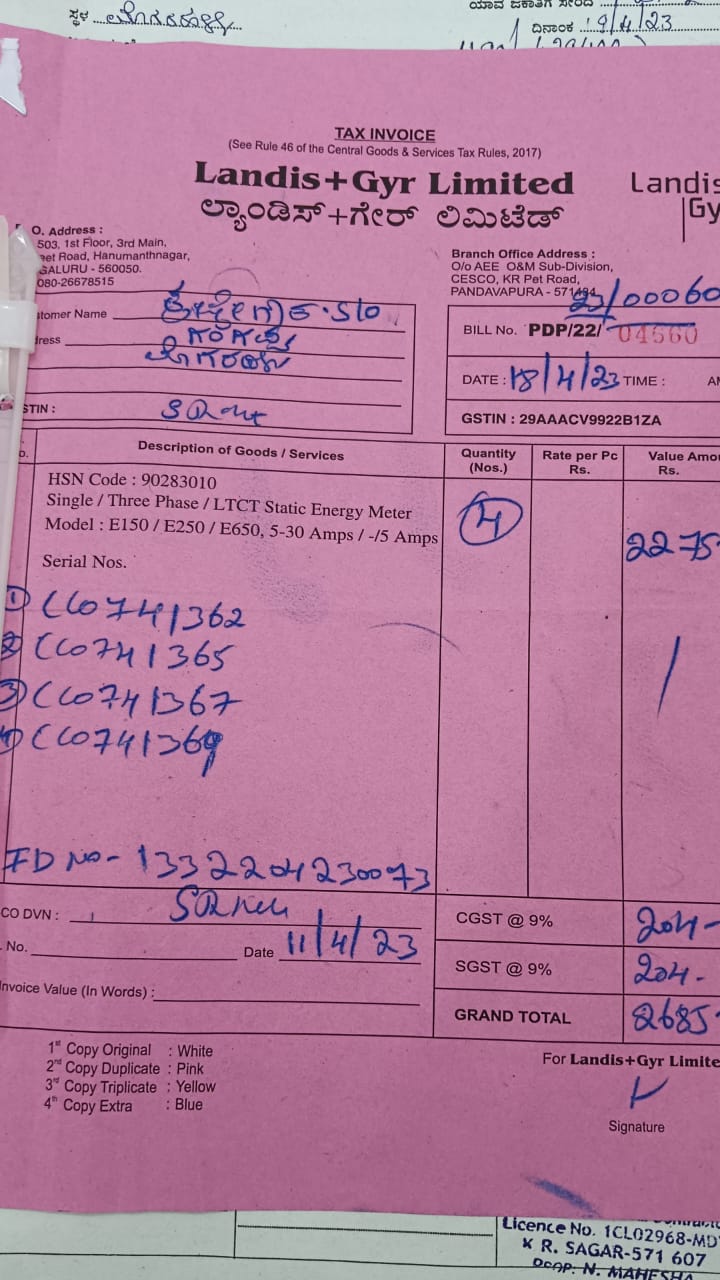 ಸ್ಥಳ
ದಿನಾಂಕ : 19/4/23
TAX INVOICE
(See Rule 46 of the Central Goods & Services Tax Rules, 2017)
Landis+Gyr Limited
ಲ್ಯಾಂಡಿಸ್+ಗೇರ್ ಲಿಮಿಟೆಡ್
Landis
Gy
O. Address :
503, 1st Floor, 3rd Main,
eet Road, Hanumanthnagar,
GALURU - 560050.
080-26678515
Branch Office Address :
O/o AEE O&M Sub-Division,
CESCO, KR Pet Road,
PANDAVAPURA - 571434
23/00060
tomer Name S/o
dress
BILL No. PDP/22/ 04560
DATE : 18/4/23 TIME : AM
STIN :
GSTIN : 29AAACV9922B1ZA
Description of Goods / Services
Quantity (Nos.)
Rate per Pc Rs.
Value Amo Rs.
HSN Code : 90283010
Single / Three Phase / LTCT Static Energy Meter
Model : E150 / E250 / E650, 5-30 Amps / -/5 Amps
4
2275
Serial Nos.
① CC0741362
② CC0741365
③ CC0741367
④ CC0741369
ID NO - 1332204230073
CO DVN :
CGST @ 9% 204-
No. Date 11/4/23
SGST @ 9% 204-
Invoice Value (In Words) :
GRAND TOTAL 2685-
1st Copy Original : White
2nd Copy Duplicate : Pink
3rd Copy Triplicate : Yellow
4th Copy Extra : Blue
For Landis+Gyr Limite
Signature
Licence No. 1CL02968-MD
K R. SAGAR-571 607
Prop. N. MAHESHA